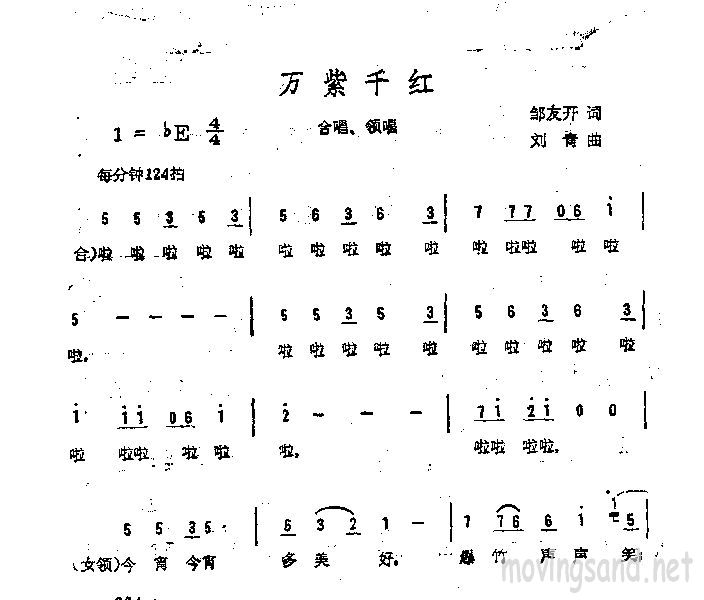 万紫千红
1 = ♭E 4/4
合唱、领唱
邹友开 词
刘青 曲
每分钟124拍
5 5 3 5 3 | 5 6 3 6 3 | 7 77 06 i |
合)啦 啦 啦 啦 啦 啦 啦 啦 啦 啦 啦 啦啦 啦 啦
5 — — — | 5 5 3 5 3 | 5 6 3 6 3 |
啦。 啦 啦 啦 啦 啦 啦 啦 啦 啦 啦
i ii 06 i | 2 — — — | 7i 2i 0 0 |
啦 啦啦 啦 啦 啦。 啦啦 啦啦。
5 5 35 | 6 32 1 — | 1 76 6 i 5
(女领)今 宵 今宵 多 美 好。 爆 竹 声 声
movingsand.net